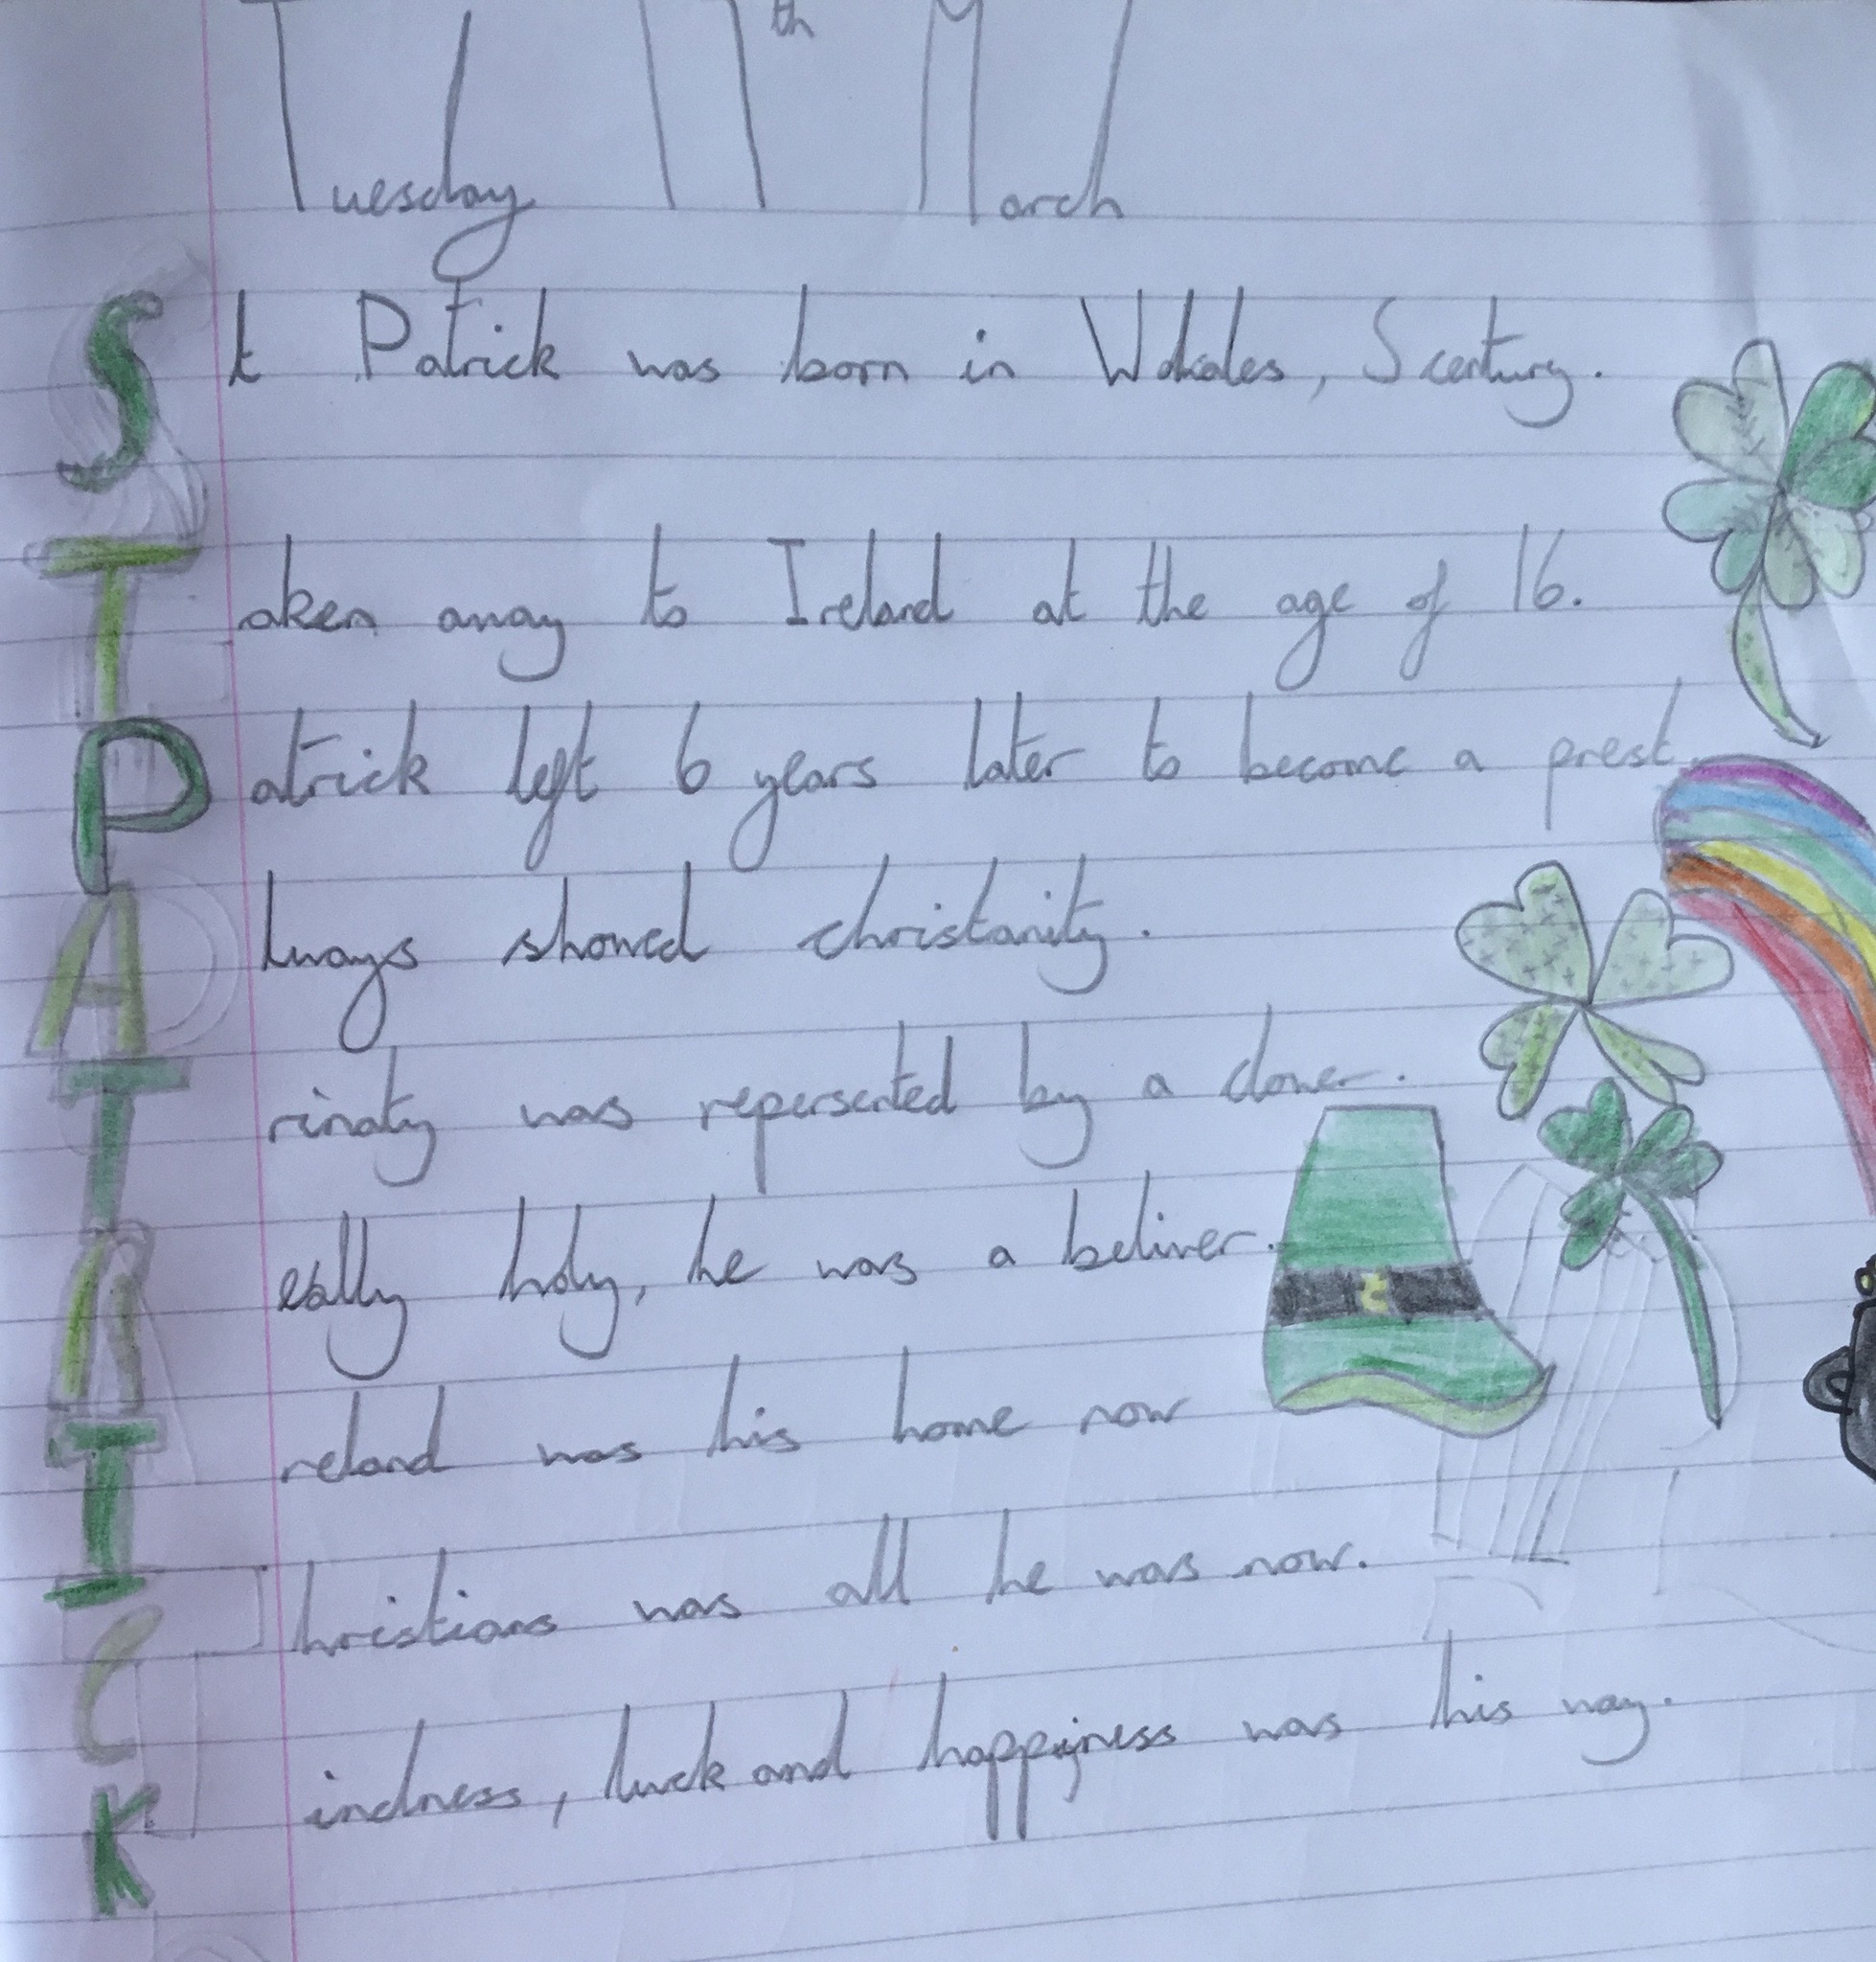 Tuesday 17th March
St Patrick was born in Wales, 5 century.
Taken away to Ireland at the age of 16.
Patrick left 6 years later to become a prest.
Always showed christanity.
Trinaty was repersented by a clover.
Really holy, he was a beliver.
Ireland was his home now
Christians was all he was now.
Kindness, luck and happyness was his way.